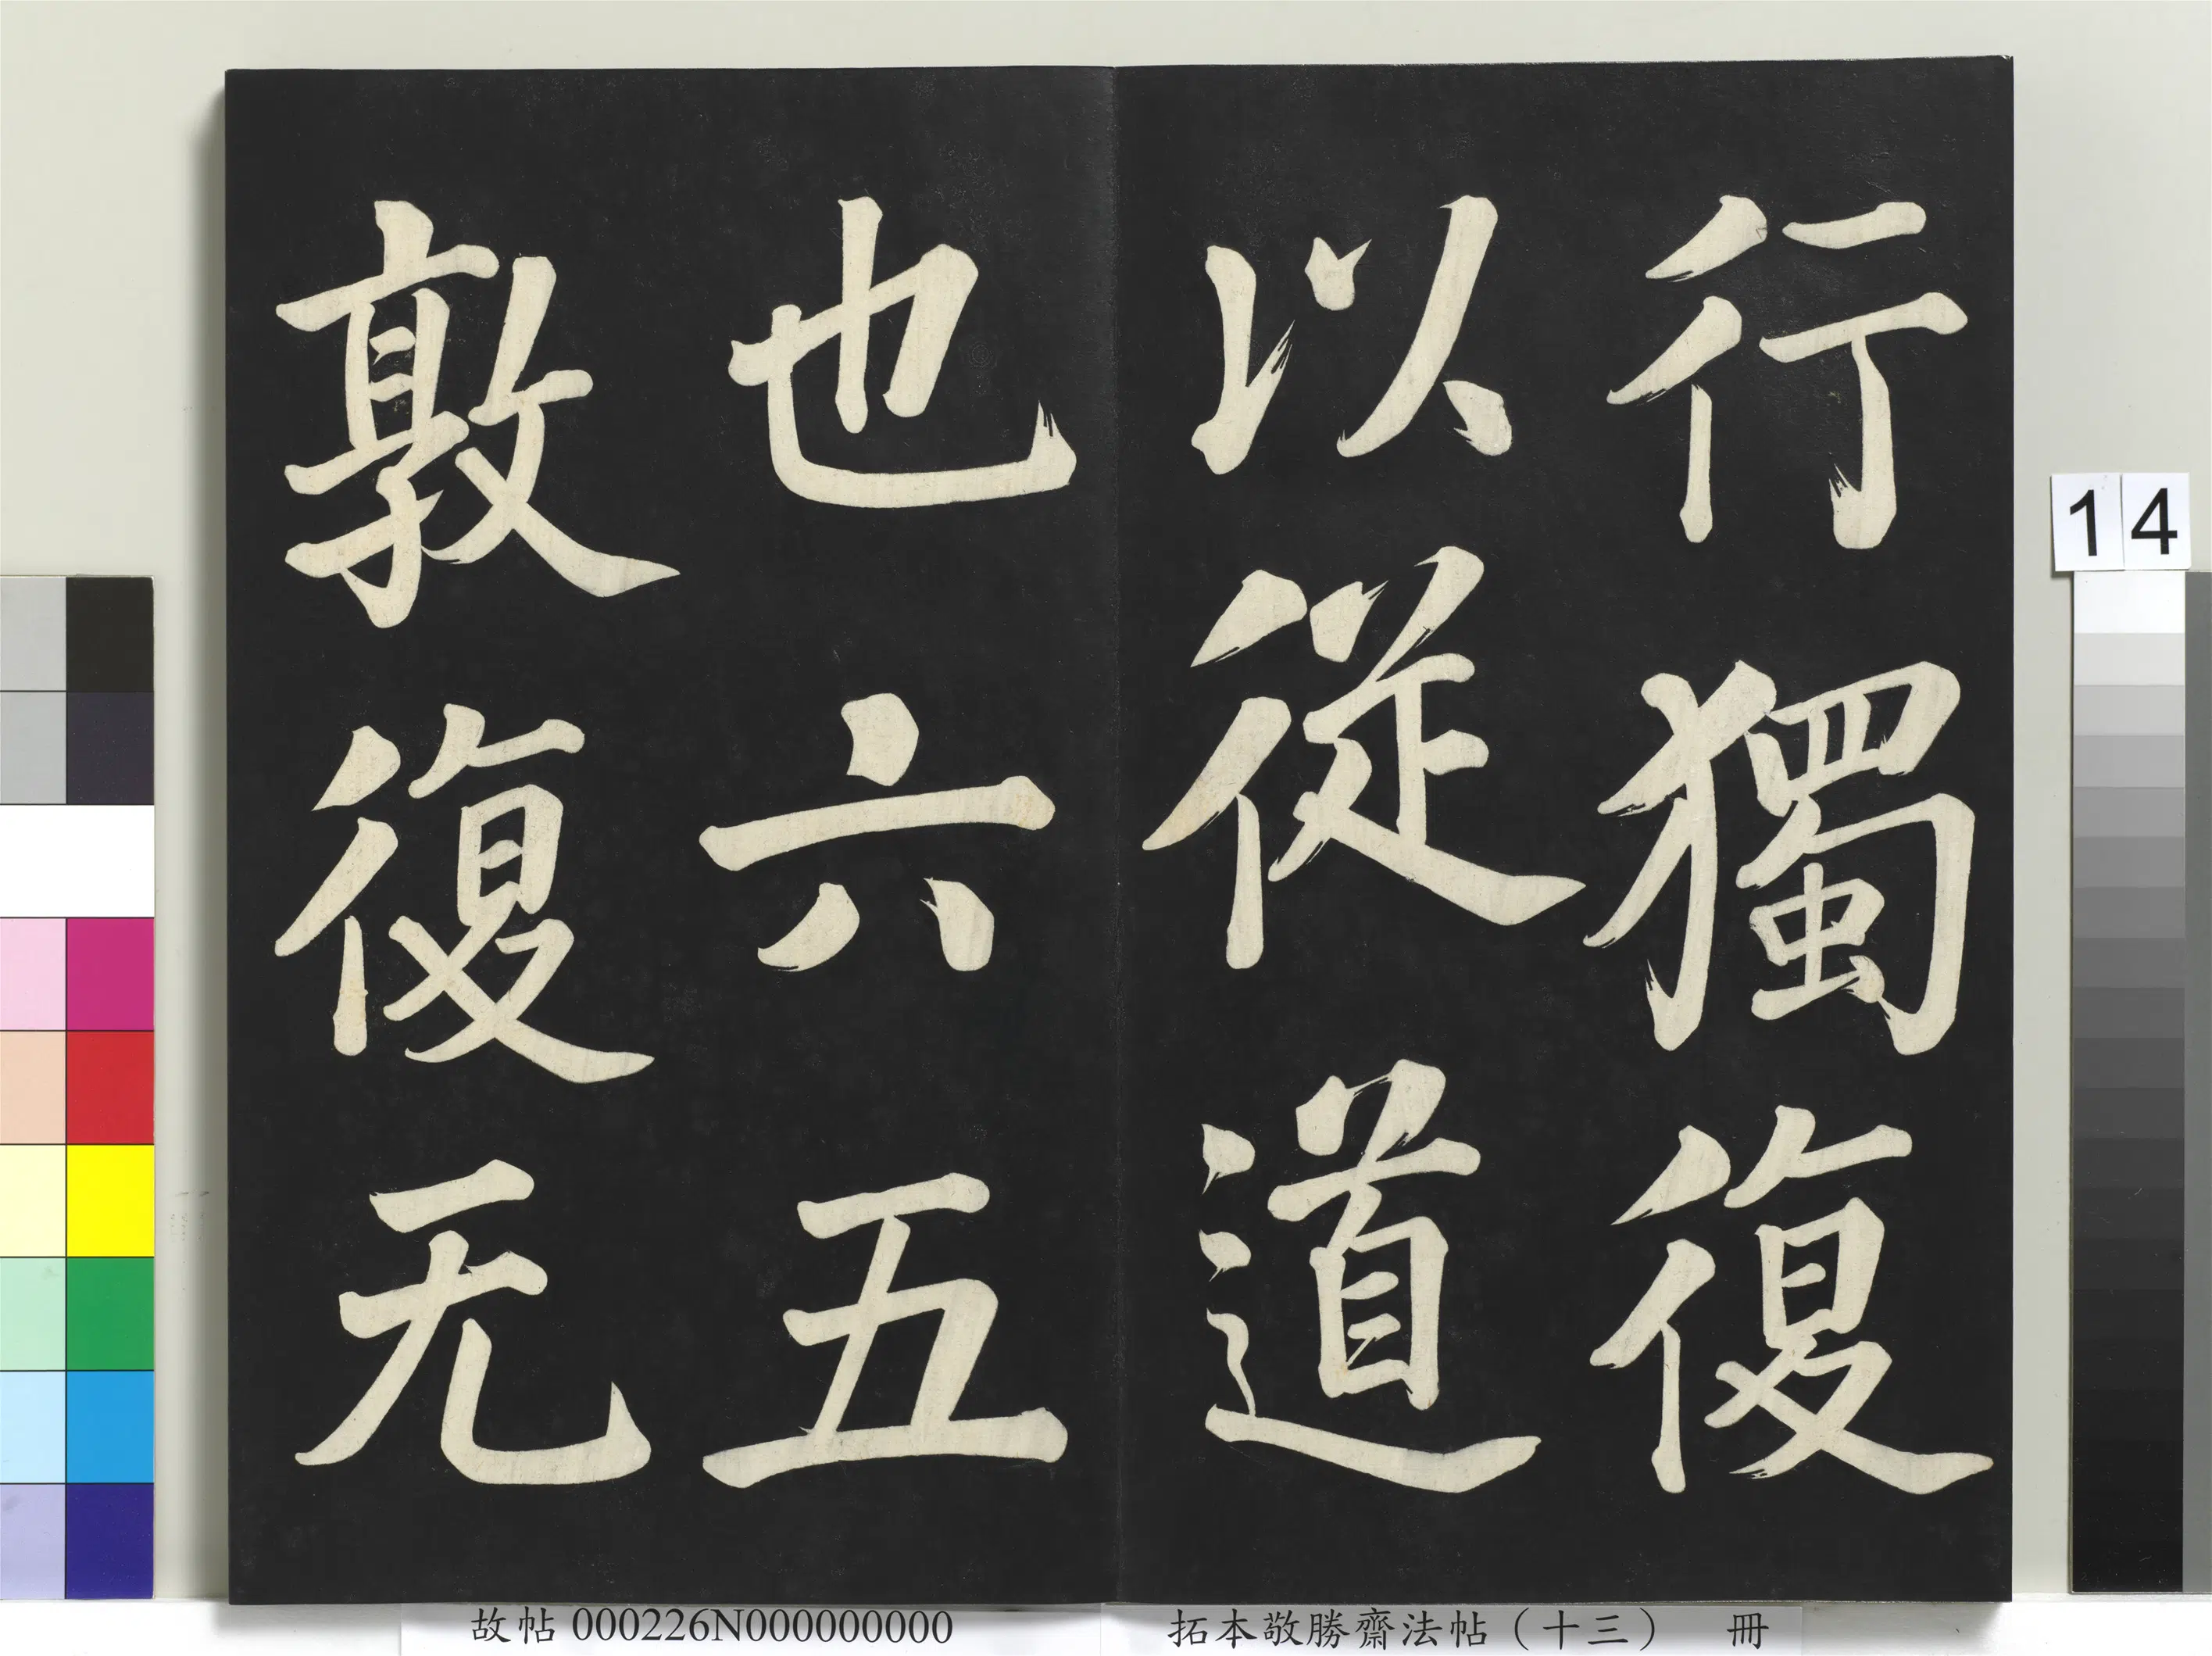 行獨復
以從道
也六五
敦復无
14
故帖 000226N000000000
拓本敬勝齋法帖（十三） 冊